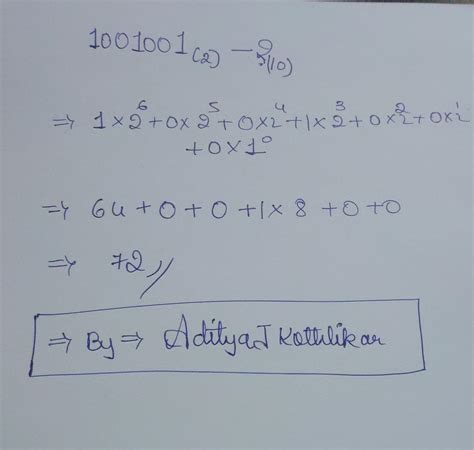 1001001(2) — ?(10)
⇒ 1×2⁶+0×2⁵+0×2⁴+1×2³+0×2²+0×2¹
+0×1⁰
⇒ 64+0+0+1×8+0+0
⇒ 72//
⇒ By ⇒ Aditya J Kottlikar